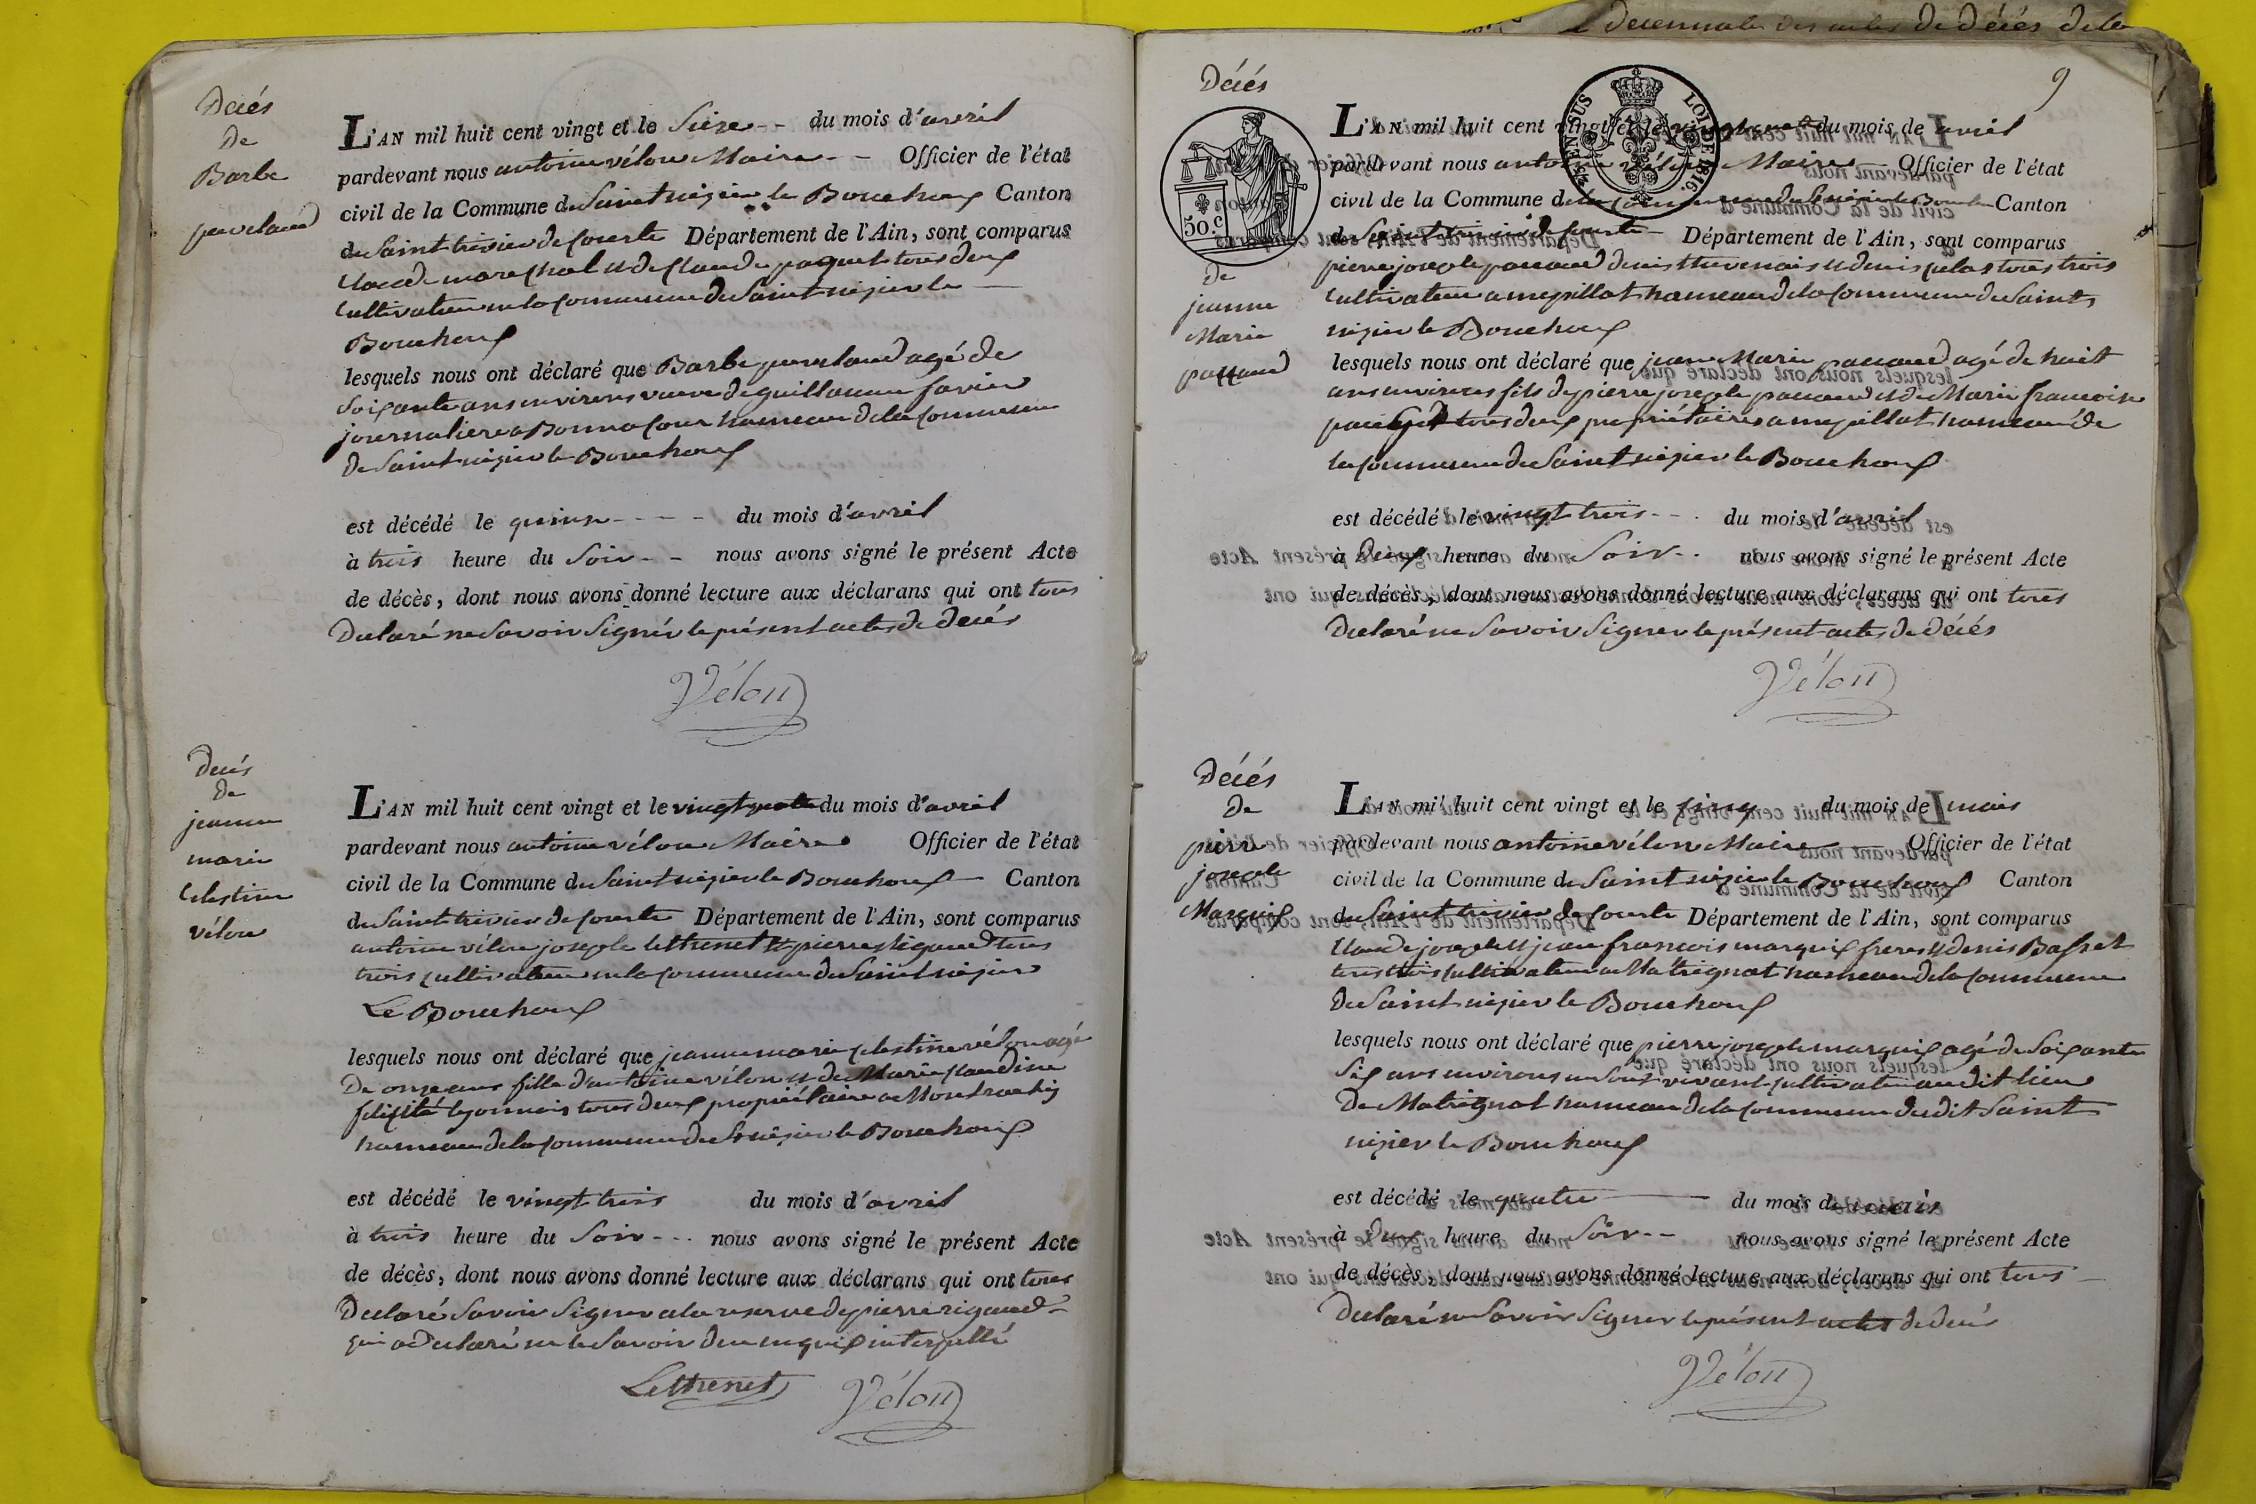 Décés
de
Barbe
L'AN mil huit cent vingt et le Sieze -- du mois d'avril
pardevant nous antoine vélon Maire -- Officier de l'état
civil de la Commune de Saint nizier le Bouchoux Canton
de Saint trivier de Courte Département de l'Ain, sont comparus
Claude marechal et de Claude paquet tous deux
Cultivateur en la Commune de Saint nizier le
Bouchoux
lesquels nous ont déclaré que Barbe agé de
Soixante ans environs veuve de guillaume favier
journaliere a Bonna Cour hameau de la Commune
de Saint nizier le Bouchoux
est décédé le quinze - - - - du mois d'avril
à trois heure du Soir - - nous avons signé le présent Acte
de décès, dont nous avons donné lecture aux déclarans qui ont tous
Declaré ne Savoir Signér le présent actes de Décés
Vélon
Decés
De
jeanne
marie
Celestine
vélon
L'AN mil huit cent vingt et le vingt quatre du mois d'avril
pardevant nous antoine vélon Maire Officier de l'état
civil de la Commune de Saint nizier le Bouchoux Canton
de Saint trivier de Courte Département de l'Ain, sont comparus
antoine vélon joseph Lethenet et pierre rigaud tous
trois Cultivateur en la Commune de Saint nizier
Le Bouchoux
lesquels nous ont déclaré que jeanne marie Celestine vélon agé
De onze ans fille d'antoine vélon et de Marie Claudine
félicité lyonnois tous deux propriétaire a
hameau de la Commune de St nizier le Bouchoux
est décédé le vingt trois du mois d'avril
à trois heure du Soir - - - nous avons signé le présent Acte
de décès, dont nous avons donné lecture aux déclarans qui ont tous
Declaré Savoir Signer a la reserve de pierre rigaud
qui a Declaré ne le Savoir de ce enquis interpellé
Lethenet Vélon
Decennale des actes de décés de la
9
Décés
50 c.
TIMBRE EN SUS LOI DE 1816.
de
jeanne
Marie
paccaud
L'AN mil huit cent vingt et le vingt quatre du mois de avril
pardevant nous antoine vélon Maire Officier de l'état
civil de la Commune de la Commune de St nizier le Bouchoux Canton
de Saint trivier de Courte Département de l'Ain, sont comparus
pierre joseph paccaud denis thevenais et denis pelas tous trois
Cultivateur a mepillat hameau de la Commune de Saint
nizier le Bouchoux
lesquels nous ont déclaré que jeane Marie paccaud agé de huit
ans environs fils de pierre joseph paccaud et de Marie francoise
tous deux propriétaires a mepillat hameau de
la Commune de Saint nizier le Bouchoux
est décédé le vingt trois - - - du mois d'avril
à Deux heure du Soir - - nous avons signé le présent Acte
de décès, dont nous avons donné lecture aux déclarans qui ont tous
Declaré ne Savoir Signer le présent actes de décés
Vélon
Décés
De
pierre
joseph
Marquis
L'AN mil huit cent vingt et le Cinq du mois de mais
pardevant nous antoine vélon Maire Officier de l'état
civil de la Commune de Saint nizier le Bouchoux Canton
de Saint trivier de Courte Département de l'Ain, sont comparus
Claude joseph et jean francois marquis freres et denis Basset
tous trois Cultivateur a Matrignat hameau de la Commune
de Saint nizier le Bouchoux
lesquels nous ont déclaré que pierre joseph marquis agé de Soixante
Six ans environs en Son vivant Cultivateur audit lieu
De Matrignat hameau de la Commune dudit Saint
nizier le Bouchoux
est décédé le quatre du mois de mais
à Deux heure du Soir - - nous avons signé le présent Acte
de décès, dont nous avons donné lecture aux déclarans qui ont tous
Declaré ne Savoir Signer le présent actes de Decés
Vélon